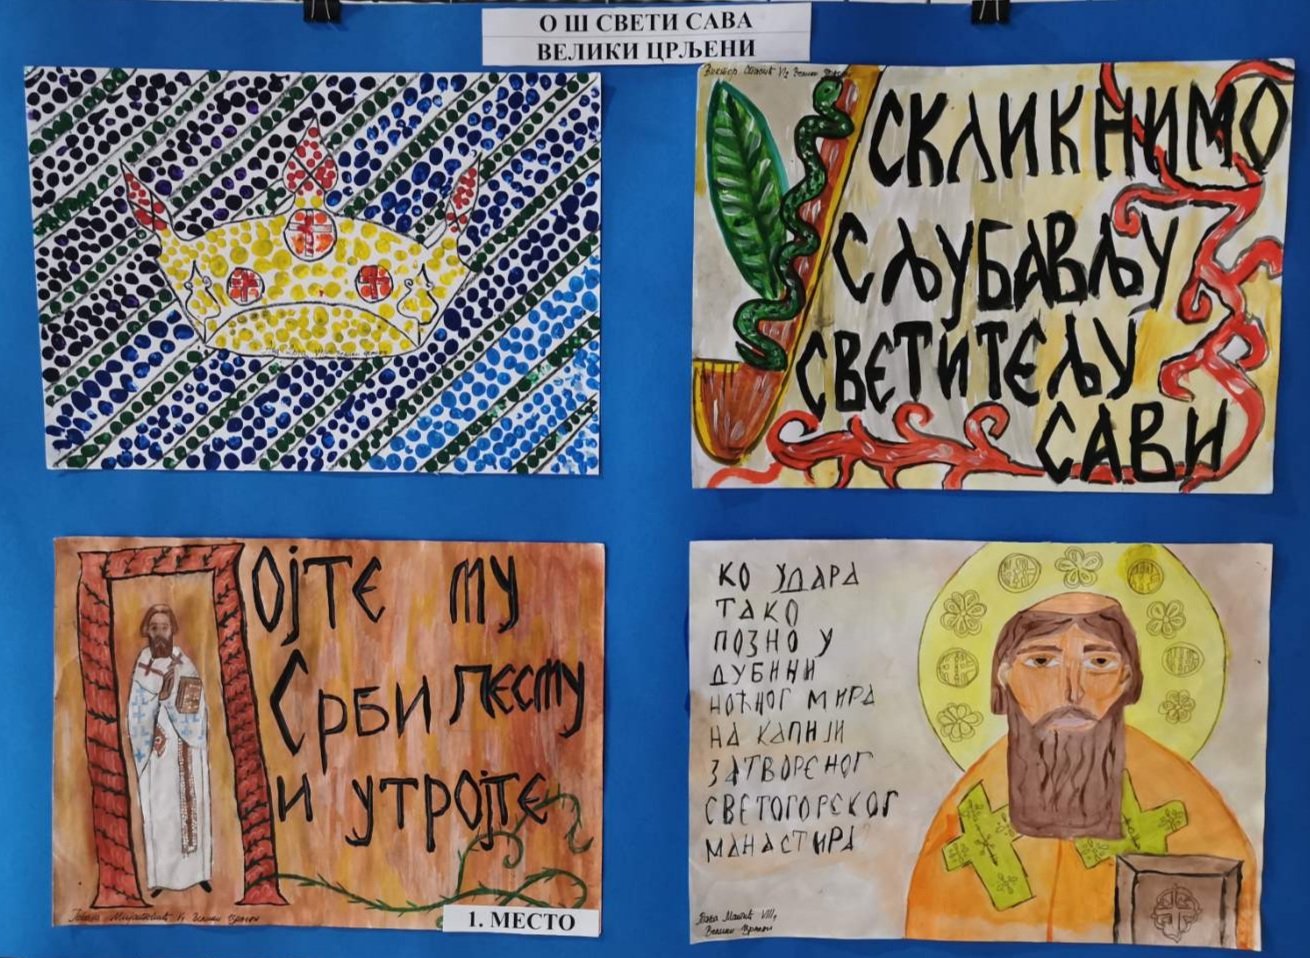 О Ш СВЕТИ САВА
ВЕЛИКИ ЦРЉЕНИ
СКЛИКНИМО
С ЉУБАВЉУ
СВЕТИТЕЉУ
САВИ
ПОЈТЕ МУ
СРБИ ПЕСМУ
И УТРОЈТЕ
1. МЕСТО
КО УДАРА
ТАКО
ПОЗНО У
ДУБИНИ
НОЋНОГ МИРА
НА КАПИЈИ
ЗАТВОРЕНОГ
СВЕТОГОРСКОГ
МАНАСТИРА
VIII₁